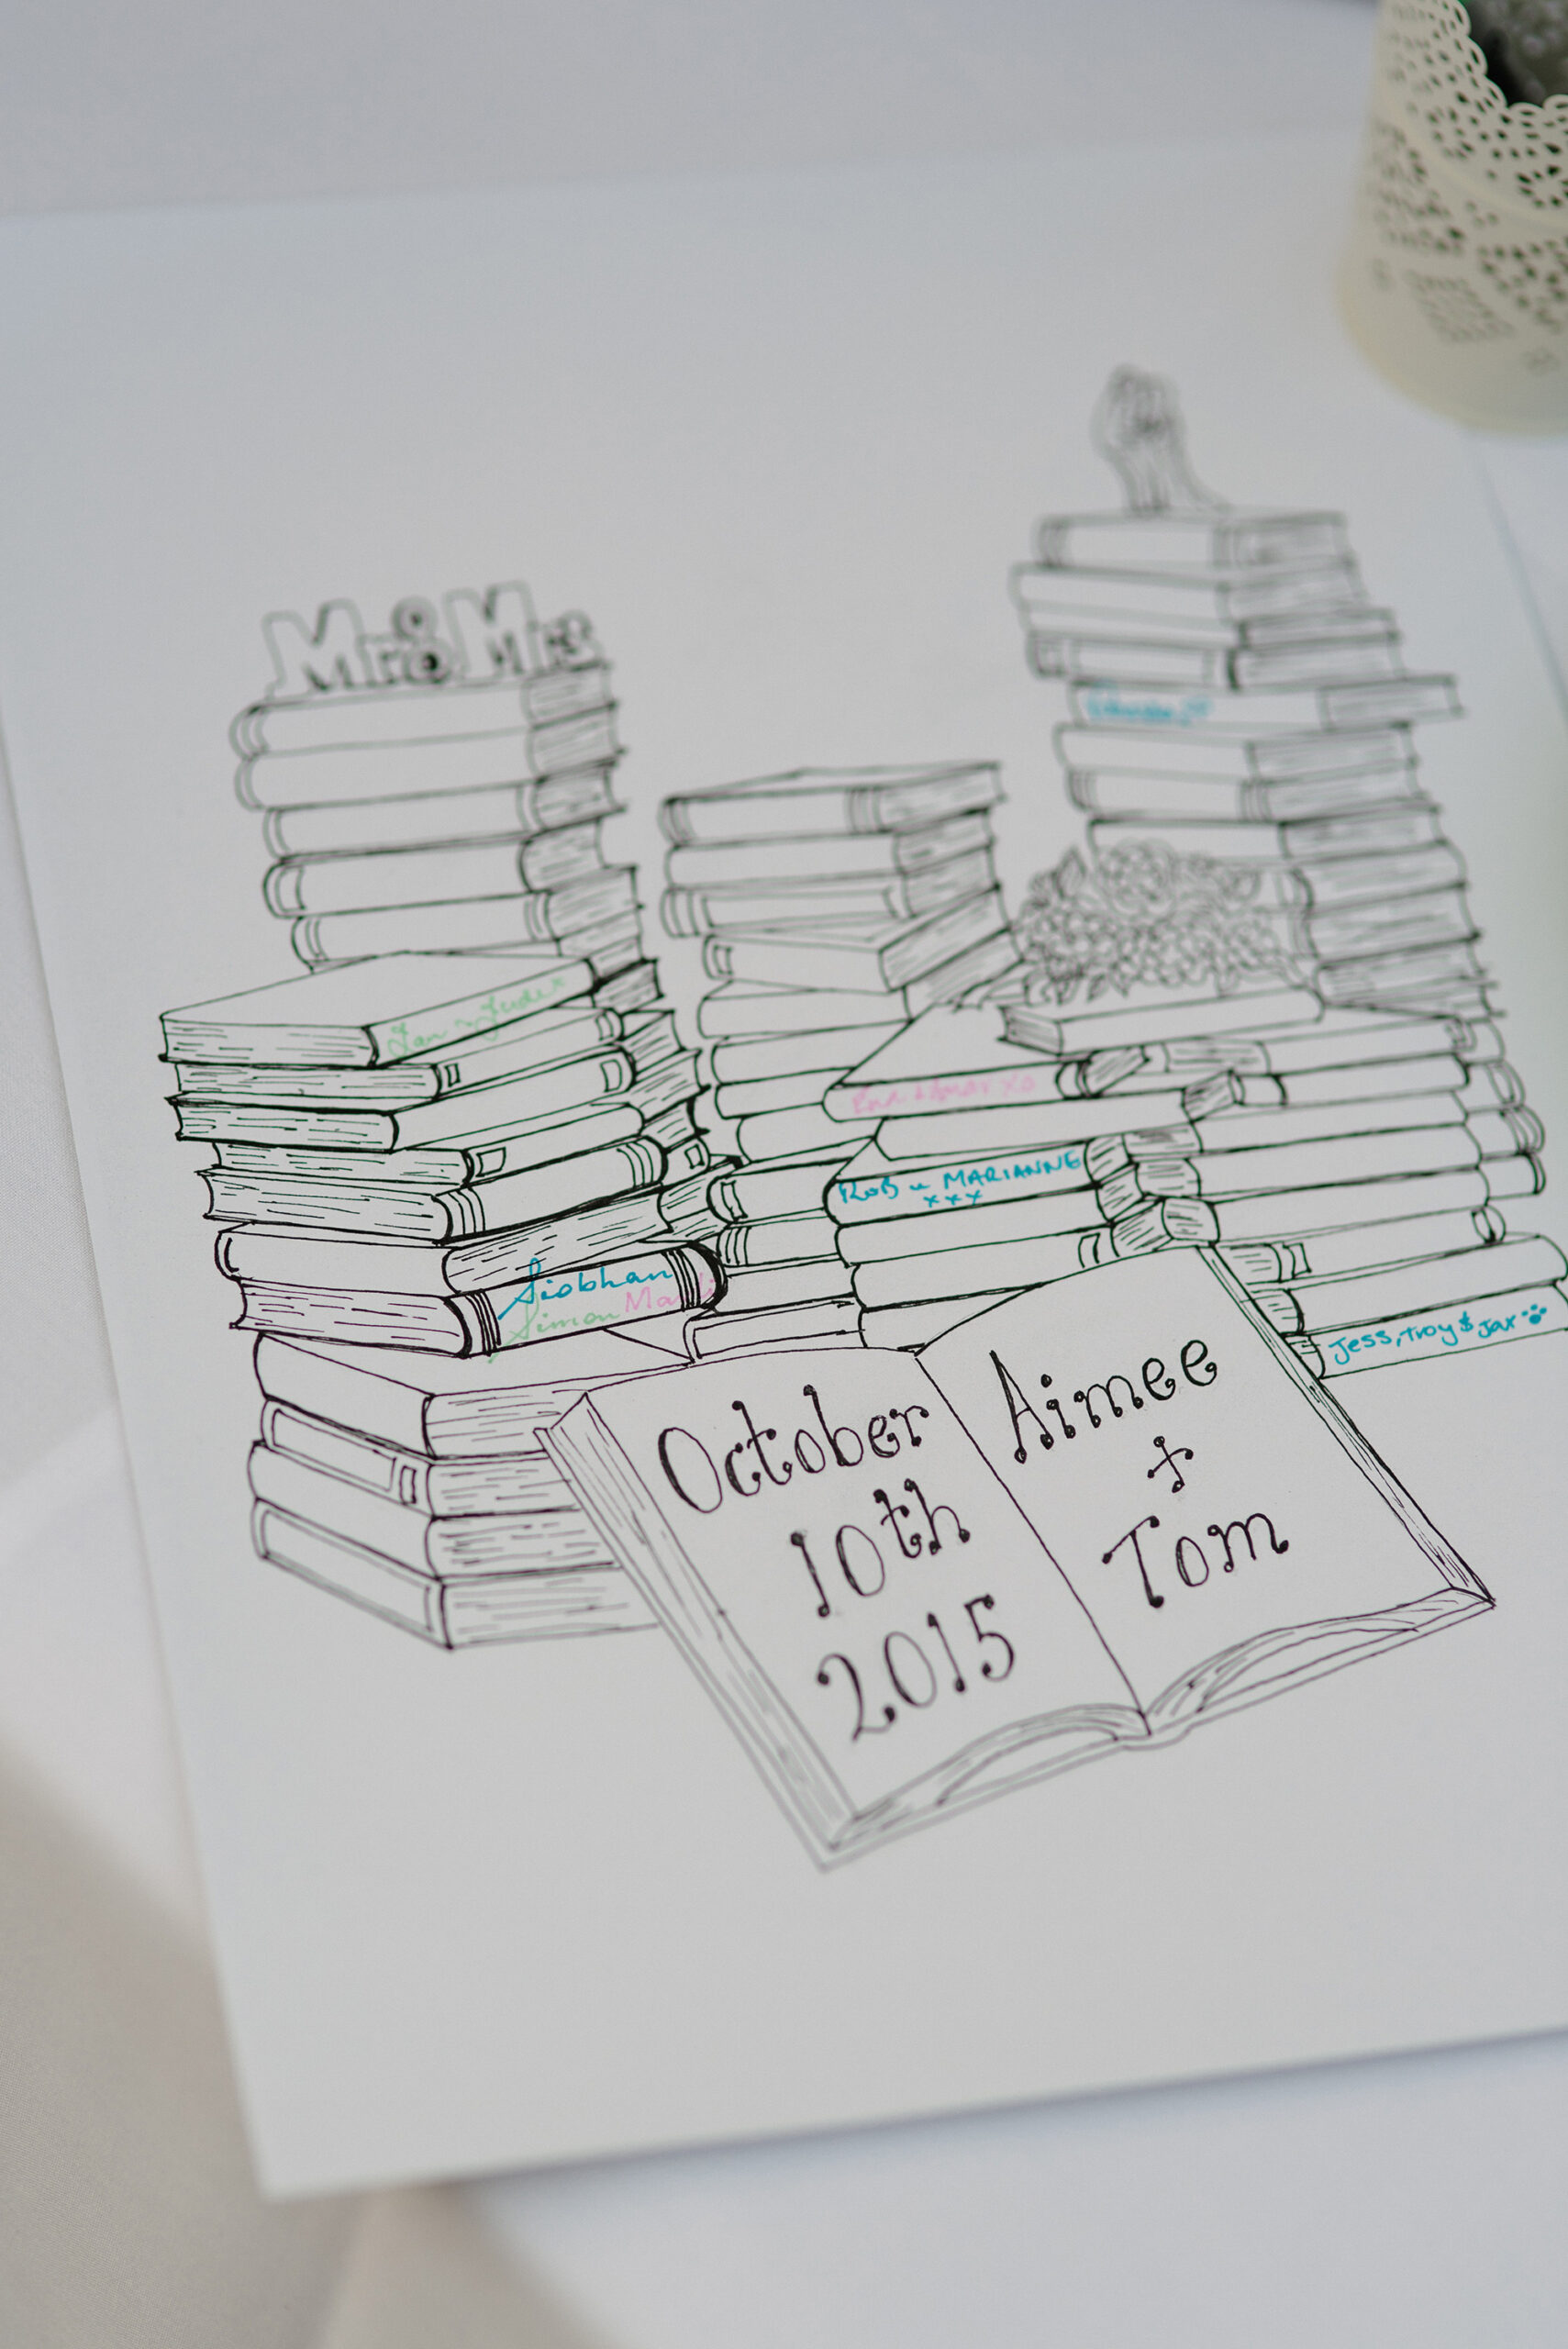 Mr & Mrs
Ian & Jude x
xo
ROB u MARIANNE
xxx
Siobhan
Simon
Jess, Troy & Jax
October
10th
2015
Aimee
+
Tom